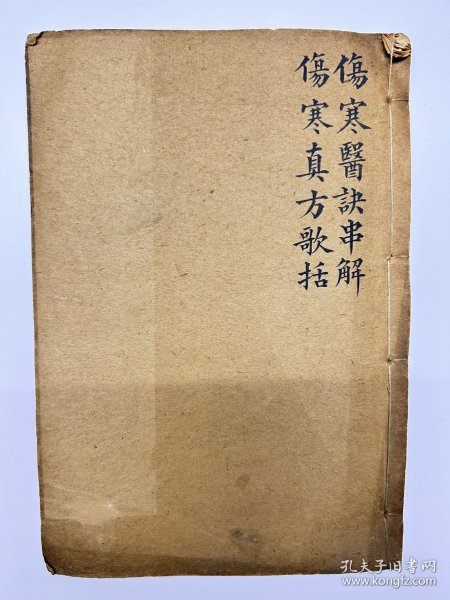 傷寒醫訣串解
傷寒真方歌括
孔夫子旧书网
www.kongfz.com